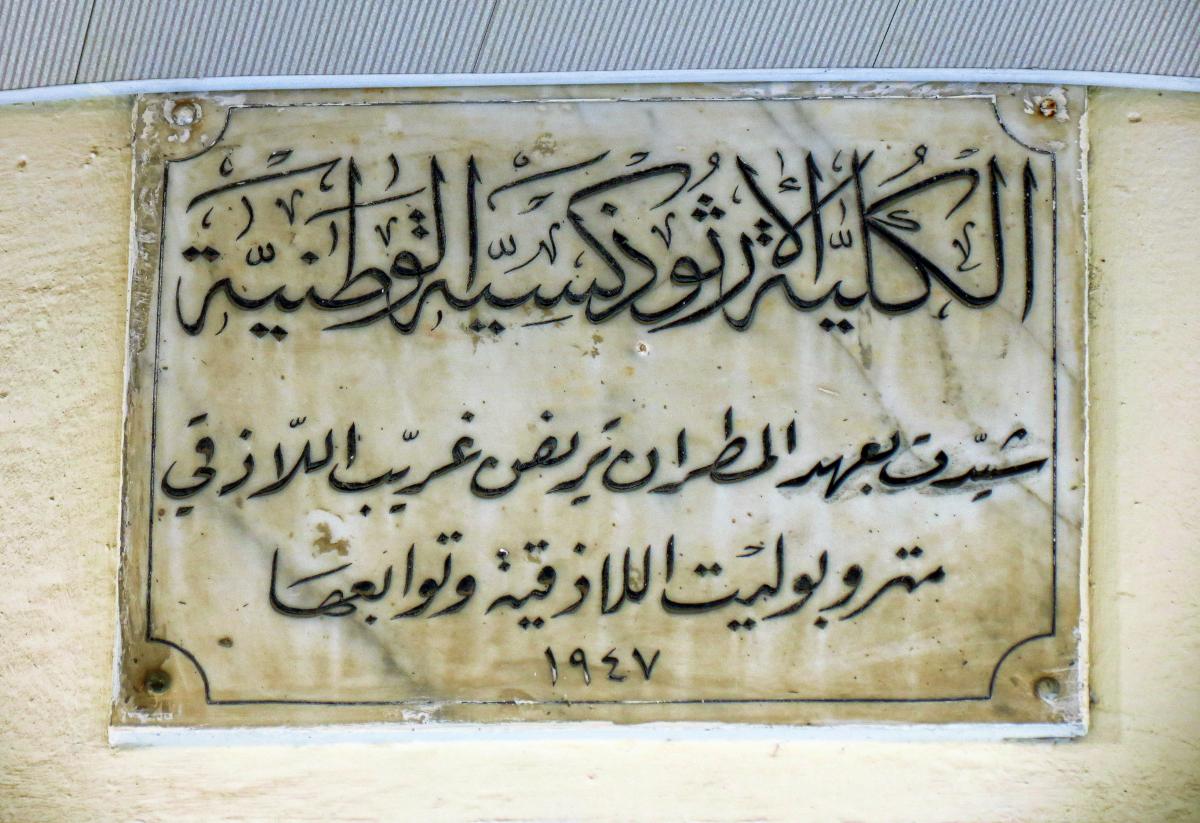 الكُليّة الأرثوذكسيّة الوَطنيّة
شيّدت بعهد المطران تريفن غريّب اللّاذقي
متروبوليت اللاذقية وتوابعها
١٩٤٧